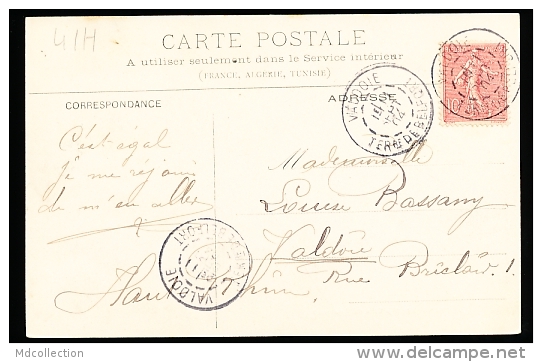 41H
CARTE POSTALE
A utiliser seulement dans le Service intérieur
(FRANCE, ALGÉRIE, TUNISIE)
CORRESPONDANCE
ADRESSE
VALDOIE
TERRE DE BELFORT
C'est égal
je me réjouis
de m'en aller
Mademoiselle
Louise Bassany
Valdoie
Rue 1.
Haut Rhin
VALDOIE
Mdcollection
delcampe.net